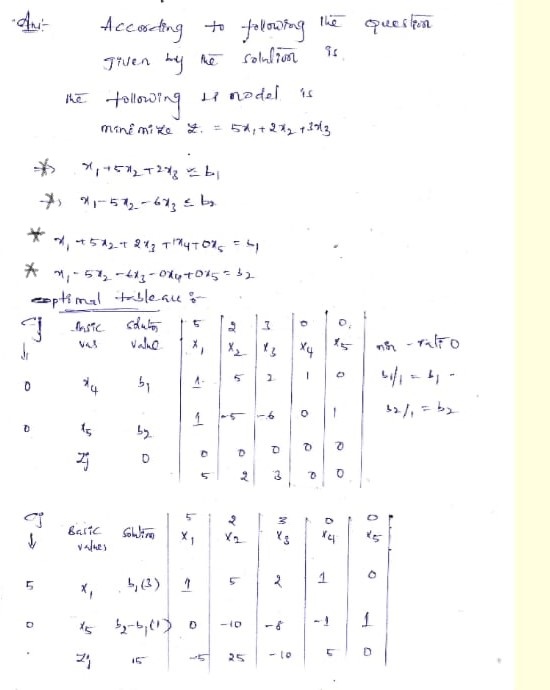 Ans:- According to following the question
given by the solution is.
the following LP model is
minimize Z. = 5x₁+2x₂+3x₃
* x₁+5x₂+2x₃ ≤ b₁
* x₁-5x₂-6x₃ ≤ b₂
* x₁+5x₂+2x₃+1x₄+0x₅ = b₁
* x₁-5x₂-6x₃-0x₄+0x₅ = b₂
optimal tableau :-
Cj 5 2 3 0 0
↓ Basic vas soluton value x₁ x₂ x₃ x₄ x₅ min - ratio
0 x₄ b₁ 1 5 2 1 0 b₁/1 = b₁ -
0 x₅ b₂ 1 -5 -6 0 1 b₂/1 = b₂
Zj 0 0 0 0 0 0
5 2 3 0 0
Cj 5 2 3 0 0
↓ Basic values solution x₁ x₂ x₃ x₄ x₅
5 x₁ b₁(3) 1 5 2 1 0
0 x₅ b₂-b₁(1) 0 -10 -8 -1 1
Zj 15 -5 25 -10 5 0